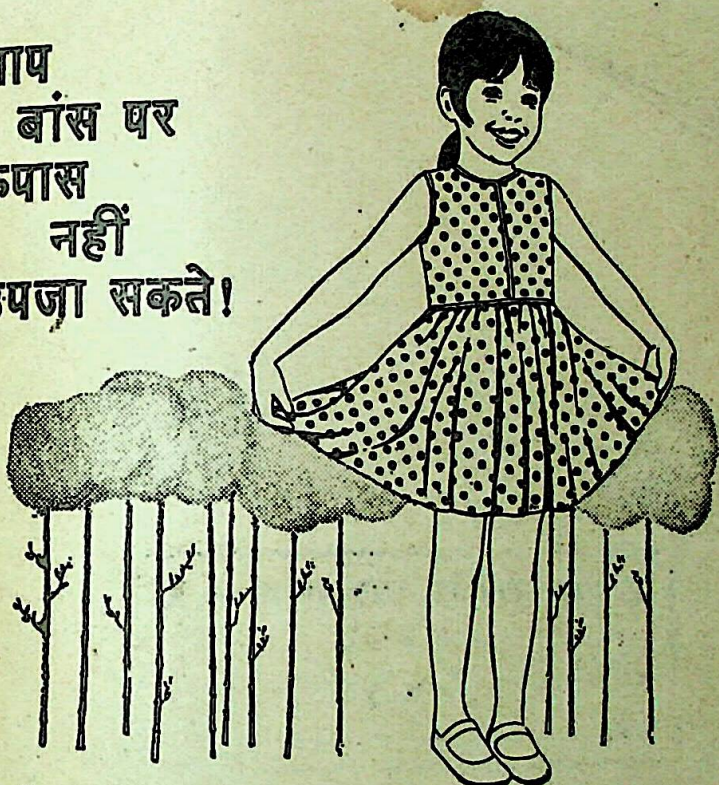 आप
बांस पर
कपास
नहीं
उपजा सकते!